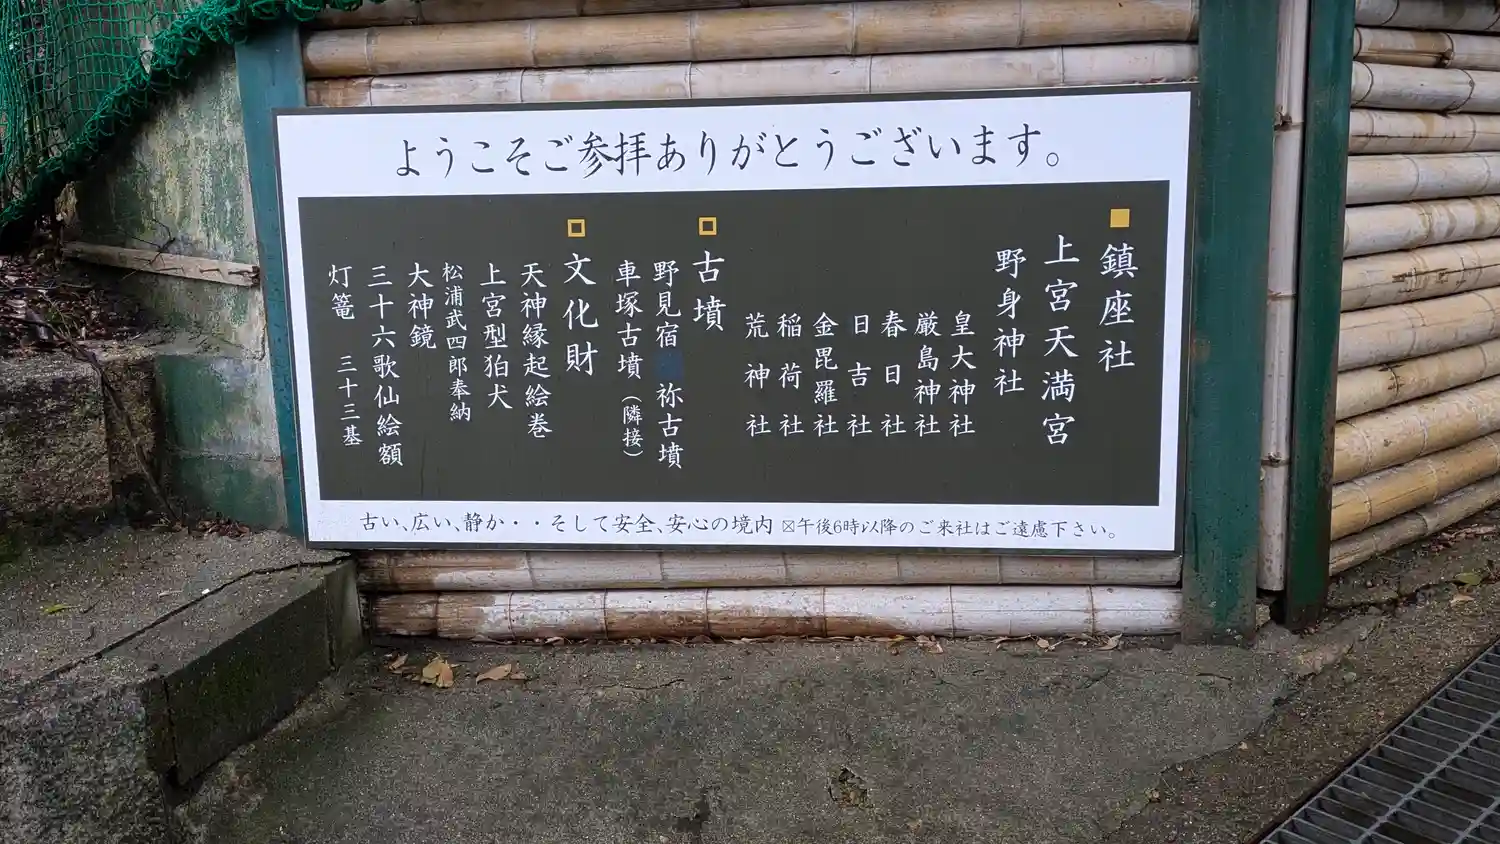 ようこそご参拝ありがとうございます。
鎮座社
上宮天満宮
野身神社
皇大神社
厳島神社
春日社
日吉社
金毘羅社
稲荷社
荒神社
古墳
野見宿祢古墳
車塚古墳(隣接)
文化財
天神縁起絵巻
上宮型狛犬
松浦武四郎奉納
大神鏡
三十六歌仙絵額
灯篭 三十三基
古い、広い、静か・・そして安全、安心の境内 午後6時以降のご来社はご遠慮下さい。